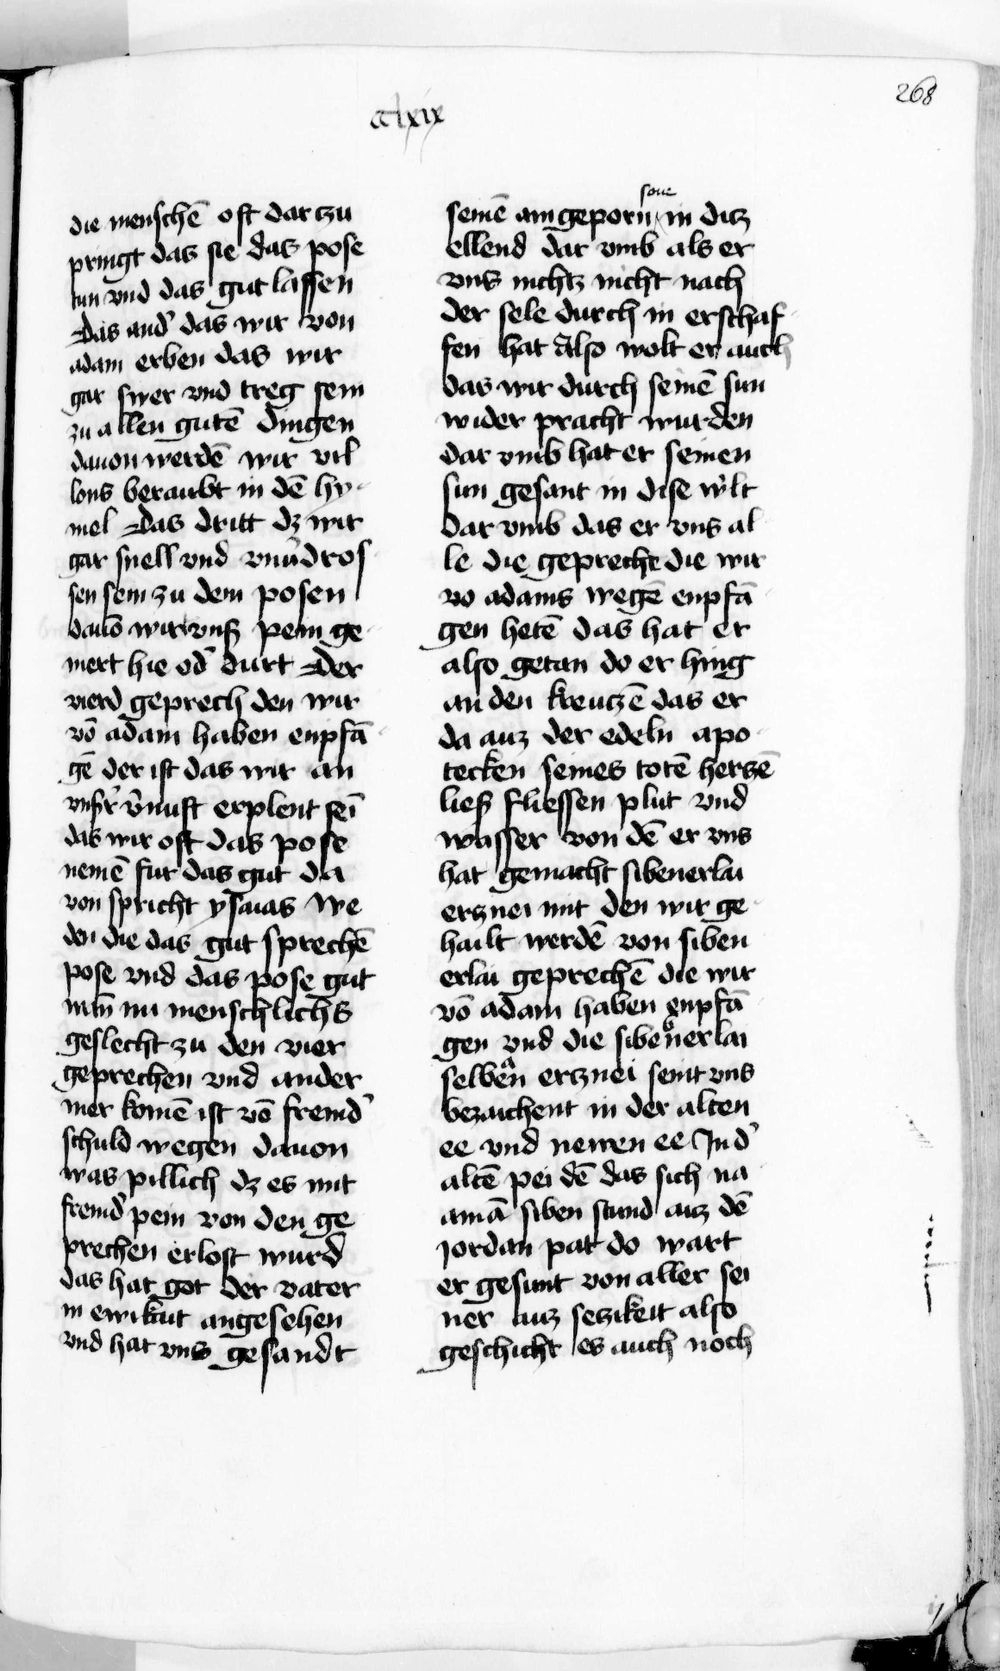 268
clxix
die menschē oft dar zu
pringt das sie das pose
tun vnd das gut lassen
Das and' das wir von
adam erben das wir
gar swer vnd treg sein
zu allen gutē dingen
dauon werdē wir vil
lons beraubt in dē hy-
mel Das dritt dz wir
gar snell vnd vnu'dros
sen sein zu dem posen
dauō wirt vnß pein ge-
mert hie od' durt Der
vierd geprech den wir
vō adam haben enpfā-
gē der ist das wir an
vnsr' v'nuft erplent seī
das wir oft das pose
nemē fur das gut da
von spricht ysaias We
den die das gut sprechē
pose vnd das pose gut
wān nu menschlichs
geslecht zu den vier
geprechen vnd ander
mer komē ist vō fremd'
schuld wegen dauon
was pillich dz es mit
fremd' pein von den ge
prechen erlost wurd
das hat got der vater
in ewikait angesehen
vnd hat vns gesandt
seinē aingeporn sone in ditz
ellend dar vmb als er
vns nichtz nicht nach
der sele durch in erschaf-
fen hat Also wolt er auch
das wir durch seinē sun
wider pracht wurden
dar vmb hat er seinen
sun gesant in dise w'lt
dar vmb das er vns al-
le die gepreche die wir
vo adams wegē enpfā-
gen hetē das hat er
also getan do er hing
an den kreutzē das er
da auz der edeln apo-
tecken seines totē herczē
ließ fliessen plut vnd
wasser von dē er vns
hat gemacht sibenerlai
ercznei mit den wir ge-
hailt werdē von siben
erlai geprechē die wir
vō adam haben enpfā-
gen vnd die sibenerlai
selben ercznei seint vns
bezaichent in der alten
ee vnd newen ee In d'
altē pei dē das sich na
amā siben stund auz dē
iordan pat do wart
er gesunt von aller sei
ner auz seczikeit also
geschicht es auch noch